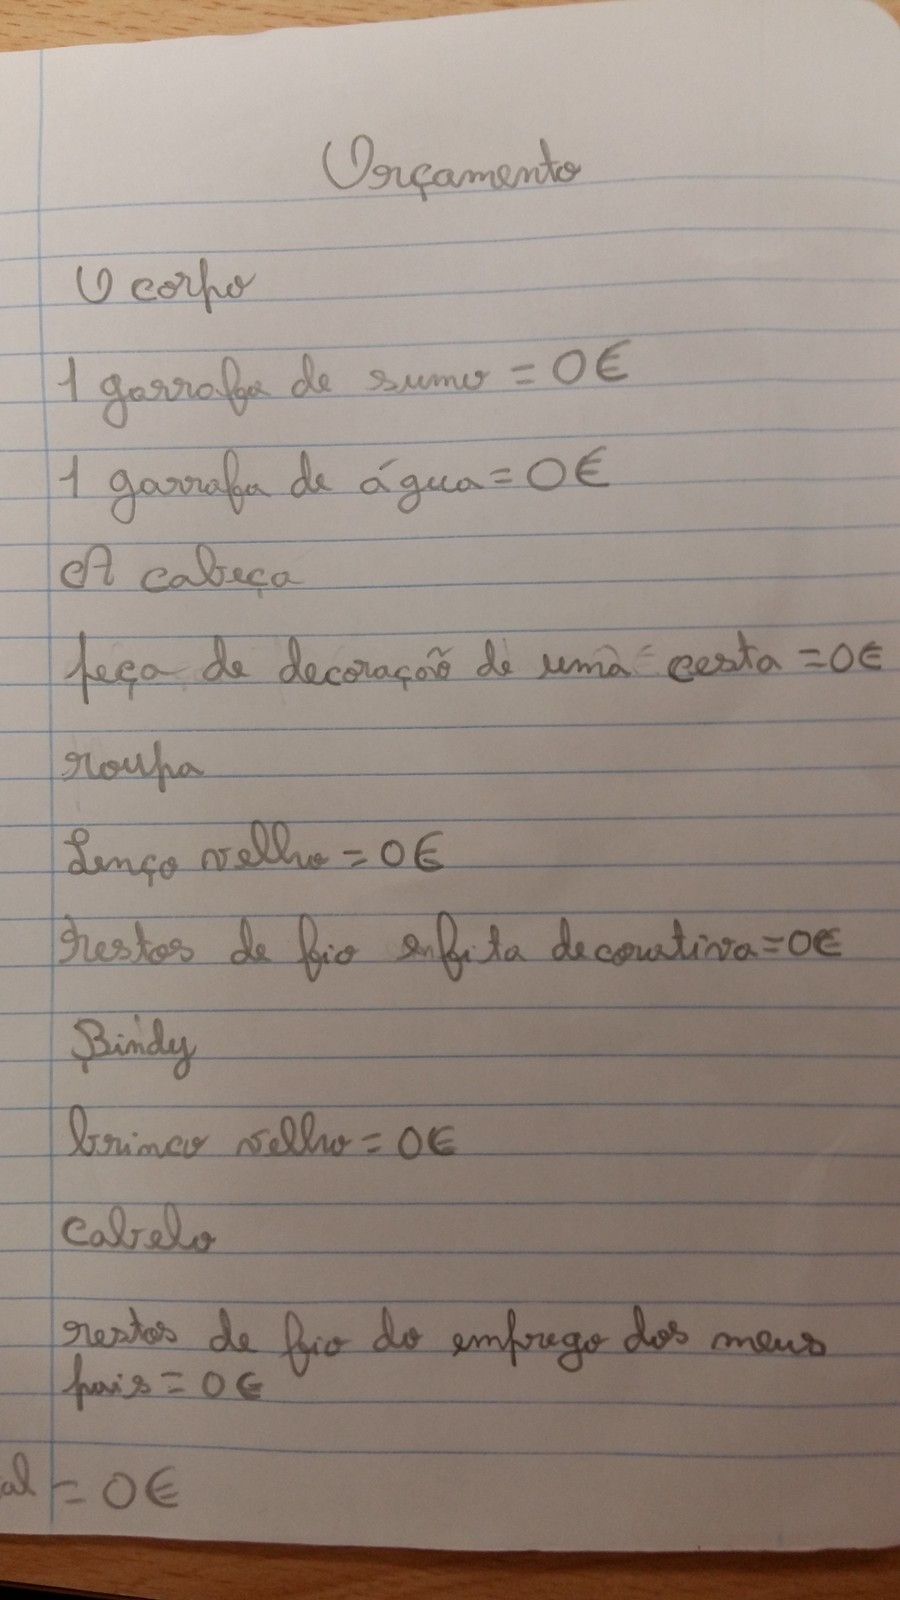 Orçamento
O corpo
1 garrafa de sumo = 0€
1 garrafa de água = 0€
A cabeça
peça de decoração de uma cesta = 0€
roupa
Lenço velho = 0€
restos de fio e fita decorativa = 0€
Bindy
brinco velho = 0€
Cabelo
restos de fio do emprego dos meus
pais = 0€
al = 0€